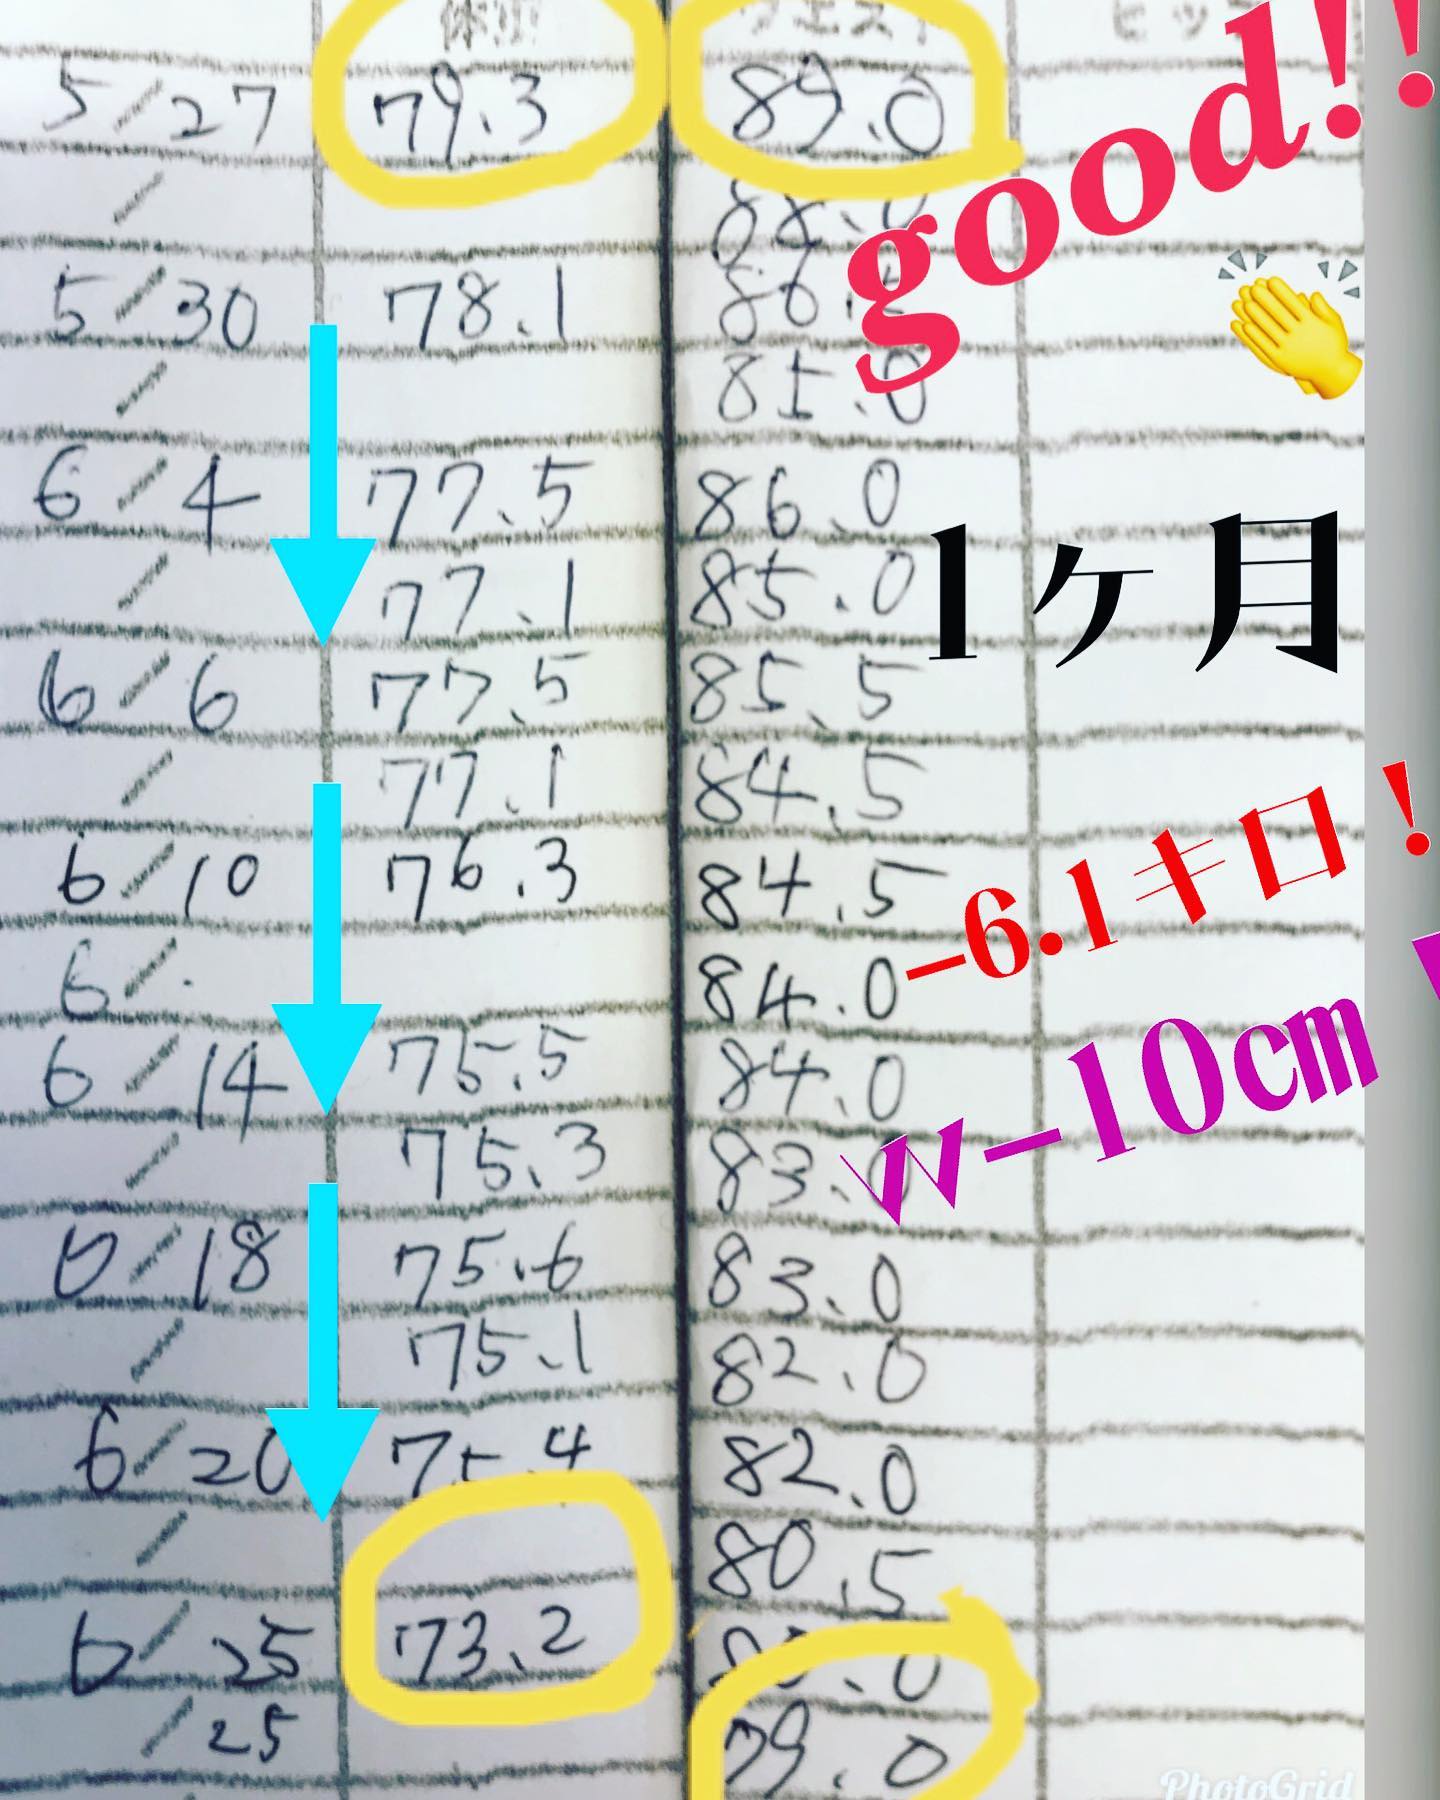 体重 ウエスト ヒップ
5/27 79.3 89.0
/ 88.0
5/30 78.1
/ 85.0
6/4 77.5 86.0
/ 77.1 85.0
6/6 77.5 85.5
/ 77.1 84.5
6/10 76.3 84.5
6/. 84.0
6/14 75.5 84.0
/ 75.3 83.0
6/18 75.6 83.0
/ 75.1 82.0
6/20 75.4 82.0
/ 80.5
6/25 73.2 80.0
/25 79.0
good!!
1ヶ月
-6.1キロ！
W-10cm
PhotoGrid